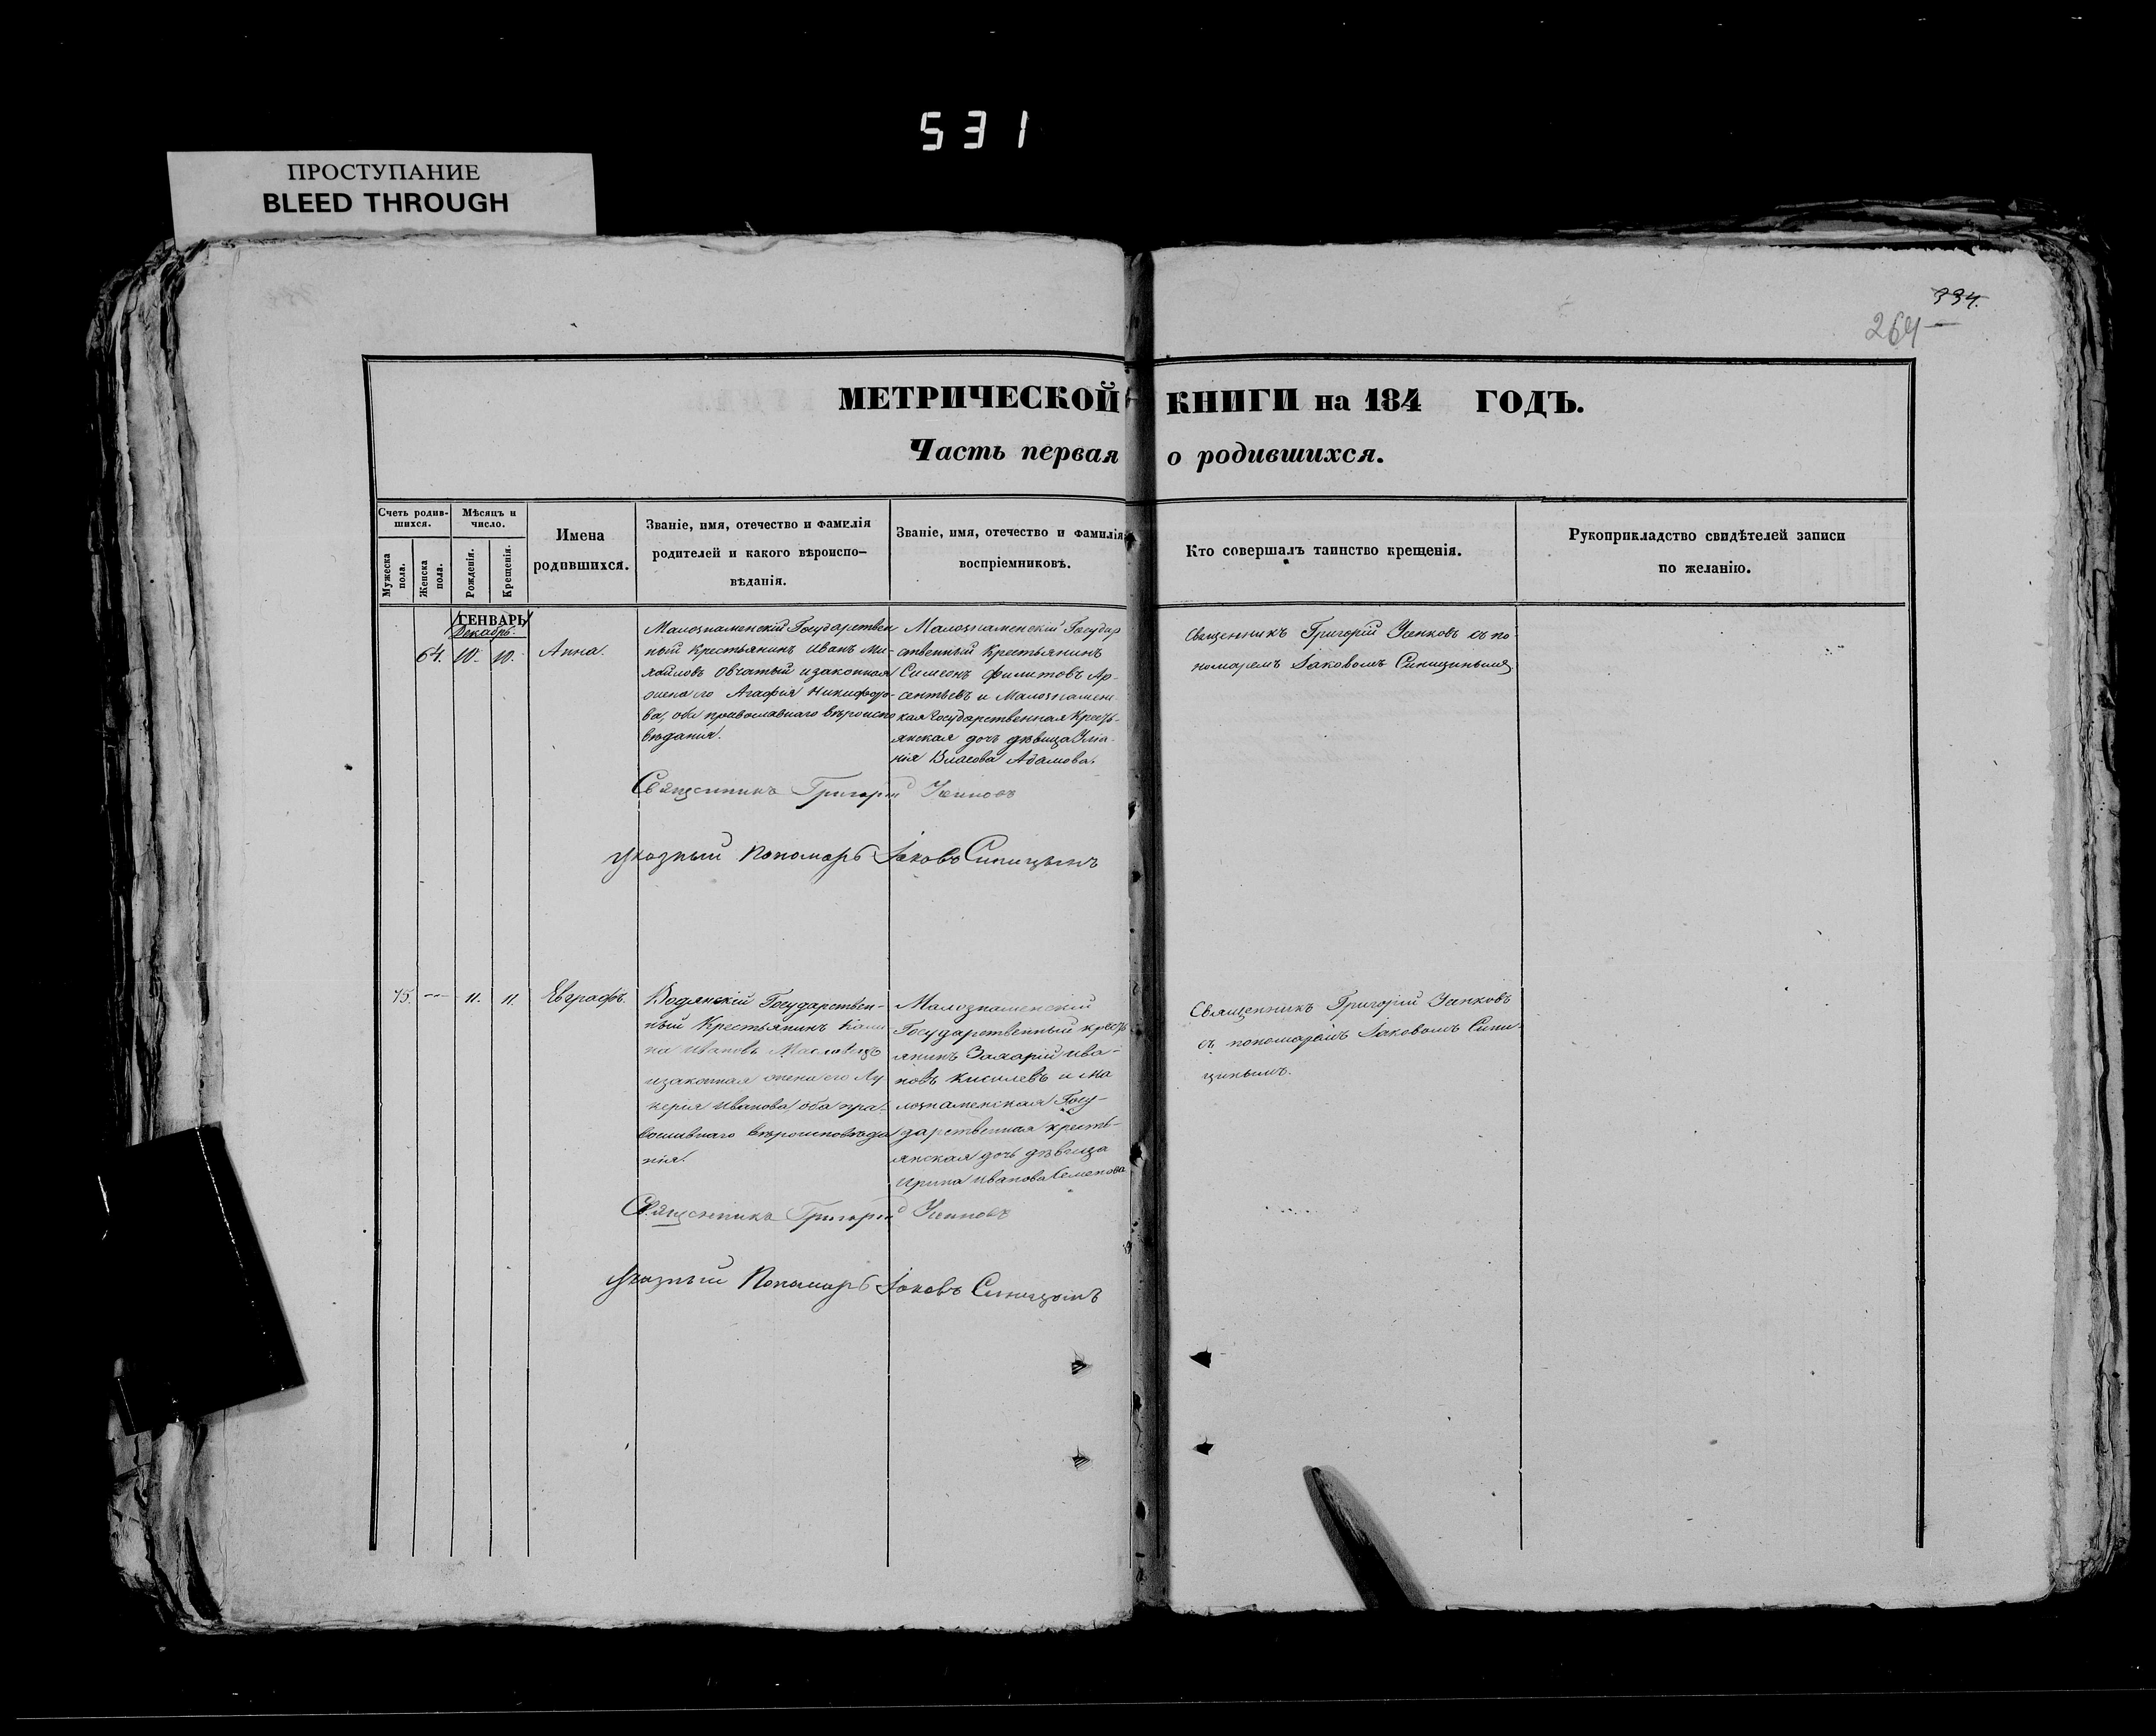 531
ПРОСТУПАНИЕ
BLEED THROUGH
334.
264
МЕТРИЧЕСКОЙ КНИГИ на 184 ГОДЪ.
Часть первая о родившихся.
Счетъ родив-
шихся.
Мужеска
пола.
Женска
пола.
Мѣсяцъ и
число.
Рожденія.
Крещенія.
Имена
родившихся.
Званіе, имя, отечество и фамилія
родителей и какого вѣроиспо-
вѣданія.
Званіе, имя, отечество и фамилія
воспріемниковъ.
Кто совершалъ таинство крещенія.
Рукоприкладство свидѣтелей записи
по желанію.
ГЕНВАРЬ
Декабрь.
64. 10. 10.
Анна.
Малознаменскій Государствен
ный Крестьянинъ Иванъ Ми-
хайловъ Овчатый и законная
жена его Агафія Никифоро-
ва, оба православнаго вѣроиспо
вѣданія.
Малознаменскій Государ
ственный Крестьянинъ
Симеонъ Филитовъ Ар-
сентьевъ и Малознамен
кая Государственная Кресть-
янская дочь дѣвица
Власова Адамова.
Священникъ Григорій съ по-
номаремъ Іаковомъ Синицынымъ
Священникъ Григорій
указный Пономарь Іаковъ Синицынъ
75. — 11. 11.
Евграфъ.
Водянскій Государствен-
ный Крестьянинъ
Ивановъ
и законная жена его Лу-
керія Иванова, оба пра-
вославнаго вѣроисповѣда
нія.
Малознаменскій
Государственный кресть
янинъ Захарій Ива-
новъ Киселевъ и Ма
лознаменская Госу-
дарственная кресть-
янская дочь дѣвица
Ирина Иванова Семенова
Священникъ Григорій
съ пономаремъ Іаковомъ Сини-
цынымъ.
Священникъ Григорій
Указный Пономарь Іаковъ Синицынъ